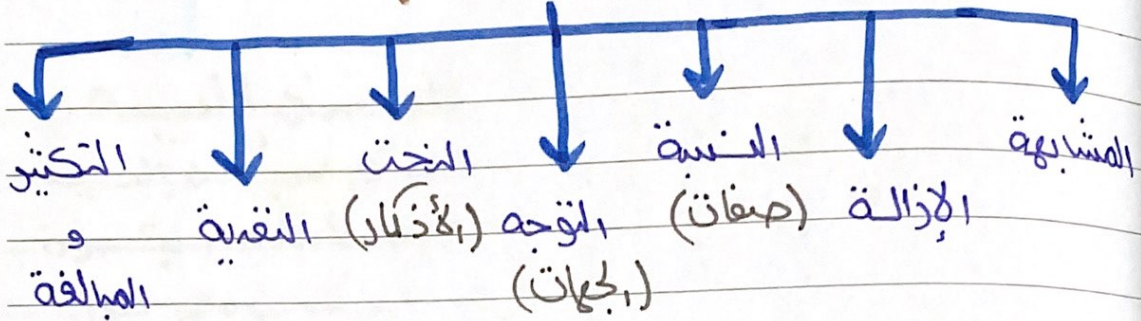 المشابهة
الإزالة
النسبة
(صفات)
التوجه
(الجهات)
النحت
(الأذكار)
التعدية
التكثير
و
المبالغة